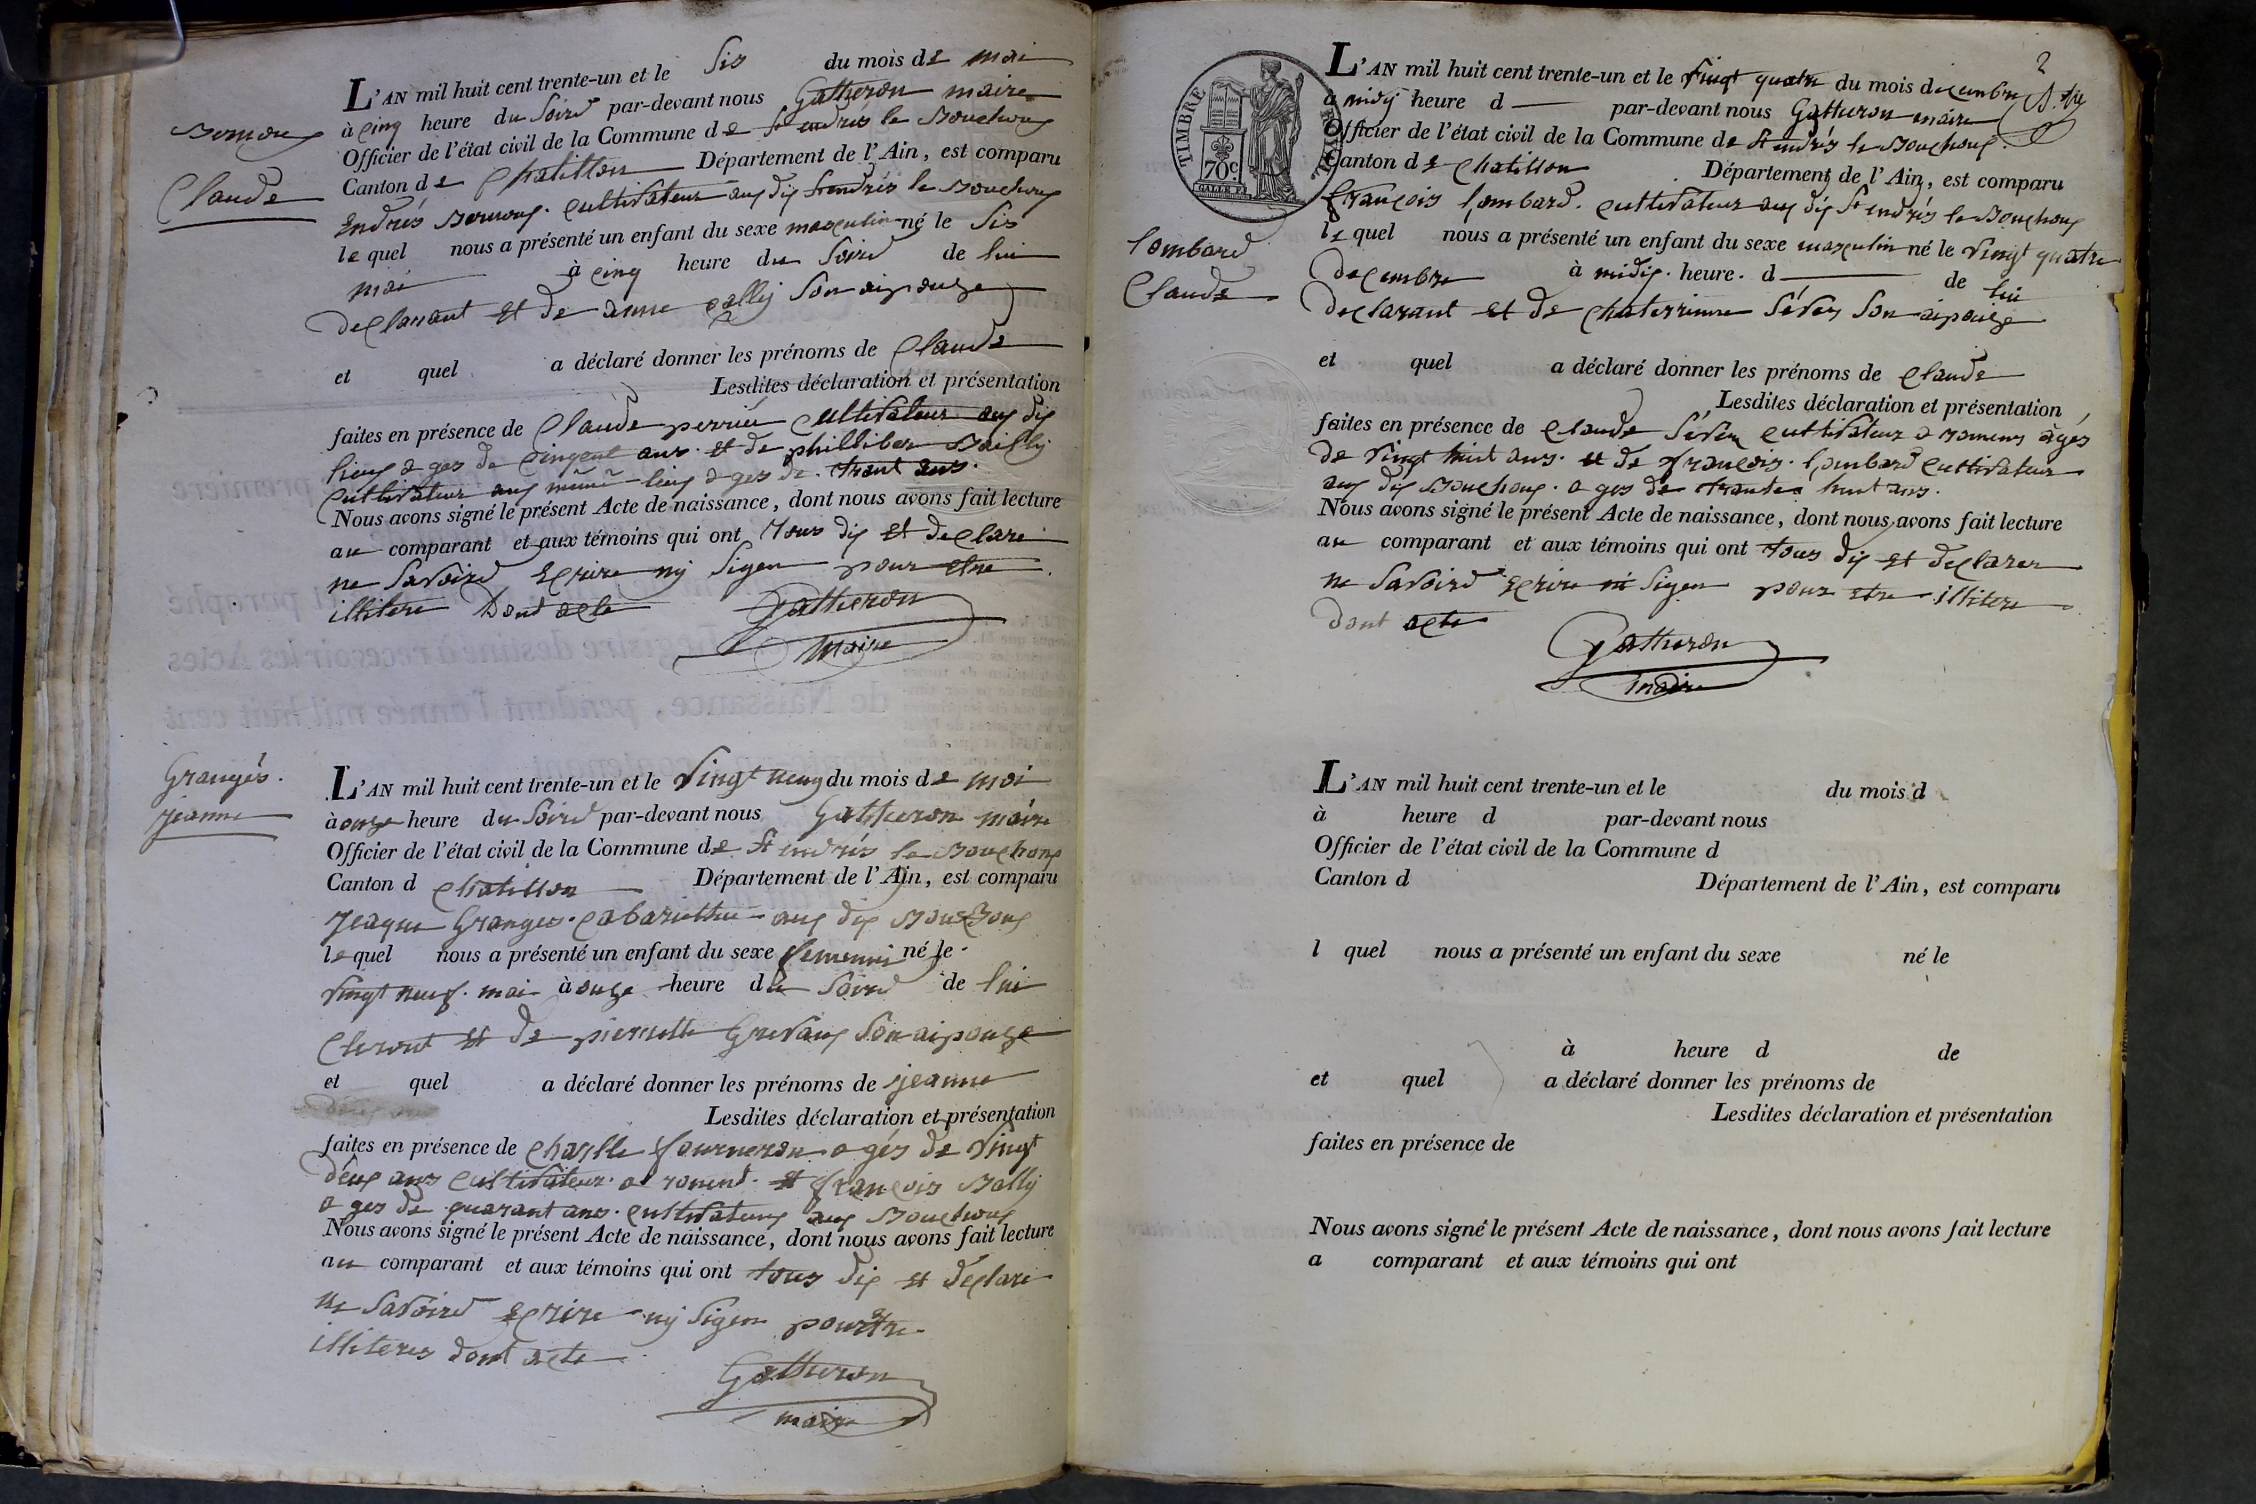 L'AN mil huit cent trente-un et le sis du mois de mai
à cinq heure du soird par-devant nous Gatheron maire
Officier de l'état civil de la Commune de St endrés le Bouchoux
Canton de Chatillon Département de l'Ain, est comparu
Endrés cultivateur aux dix St endrés le Bouchoux
le quel nous a présenté un enfant du sexe masculin né le sis
mai à cinq heure du soird de lui
declarant et de anne son aipouze
et quel a déclaré donner les prénoms de Claude
Lesdites déclaration et présentation
faites en présence de Claude perrier cultivateur aux dix
lieux a ges de ans. et de philliber Bailly
cultivateur aux même lieux a ges de trant ans.
Nous avons signé le présent Acte de naissance, dont nous avons fait lecture
au comparant et aux témoins qui ont tous dix et declare
ne savoird ecrire ny signer pour etre
illitere dont acte Gatheron
maire
Claude
Granges.
jeanne
L'AN mil huit cent trente-un et le vingt neuf du mois de mai
à onze heure du soird par-devant nous Gatheron maire
Officier de l'état civil de la Commune de St endrés le Bouchoux
Canton d Chatillon Département de l'Ain, est comparu
jeaque Granges. cabaretier aux dix Bouchoux
le quel nous a présenté un enfant du sexe femenin né le
vingt neuf. mai à onze heure du soird de lui
et de pierrette Grevaux son aipouze
et quel a déclaré donner les prénoms de jeanne
Lesdites déclaration et présentation
faites en présence de Charlle fourneron a gés de vingt
deux ans cultivateur. a et françois Bally
a ges de quarant ans. cultivateur aux Bouchoux
Nous avons signé le présent Acte de naissance, dont nous avons fait lecture
au comparant et aux témoins qui ont tous dix et déclare
ne savoird ecrire ny signer pour etre
illiteres dont acte
Gatheron
maire
2
TIMBRE ROYAL
70c.
L'AN mil huit cent trente-un et le vingt quatre du mois de decembre
à midy heure d par-devant nous Gatheron maire
Officier de l'état civil de la Commune de St endrés le Bouchoux.
Canton de Chatillon Département de l'Ain, est comparu
françois lombard. cultivateur aux dix St endrés le Bouchoux
le quel nous a présenté un enfant du sexe masculin né le vingt quatre
decembre à midis. heure. d de lui
declarant et de chaterinne son aipouze
lombard
Claude
et quel a déclaré donner les prénoms de Claude
Lesdites déclaration et présentation
faites en présence de Claude cultivateur a romens àgés
de vingt huit ans. et de françois. lombard cultivateur
aux dix Bouchoux. a ges de trante huit ans.
Nous avons signé le présent Acte de naissance, dont nous avons fait lecture
au comparant et aux témoins qui ont tous dix et declarer
ne savoird ecrire ni signer pour etre illitere
dont acte
Gatheron
maire
L'AN mil huit cent trente-un et le du mois d
à heure d par-devant nous
Officier de l'état civil de la Commune d
Canton d Département de l'Ain, est comparu
l quel nous a présenté un enfant du sexe né le
à heure d de
et quel a déclaré donner les prénoms de
Lesdites déclaration et présentation
faites en présence de
Nous avons signé le présent Acte de naissance, dont nous avons fait lecture
a comparant et aux témoins qui ont